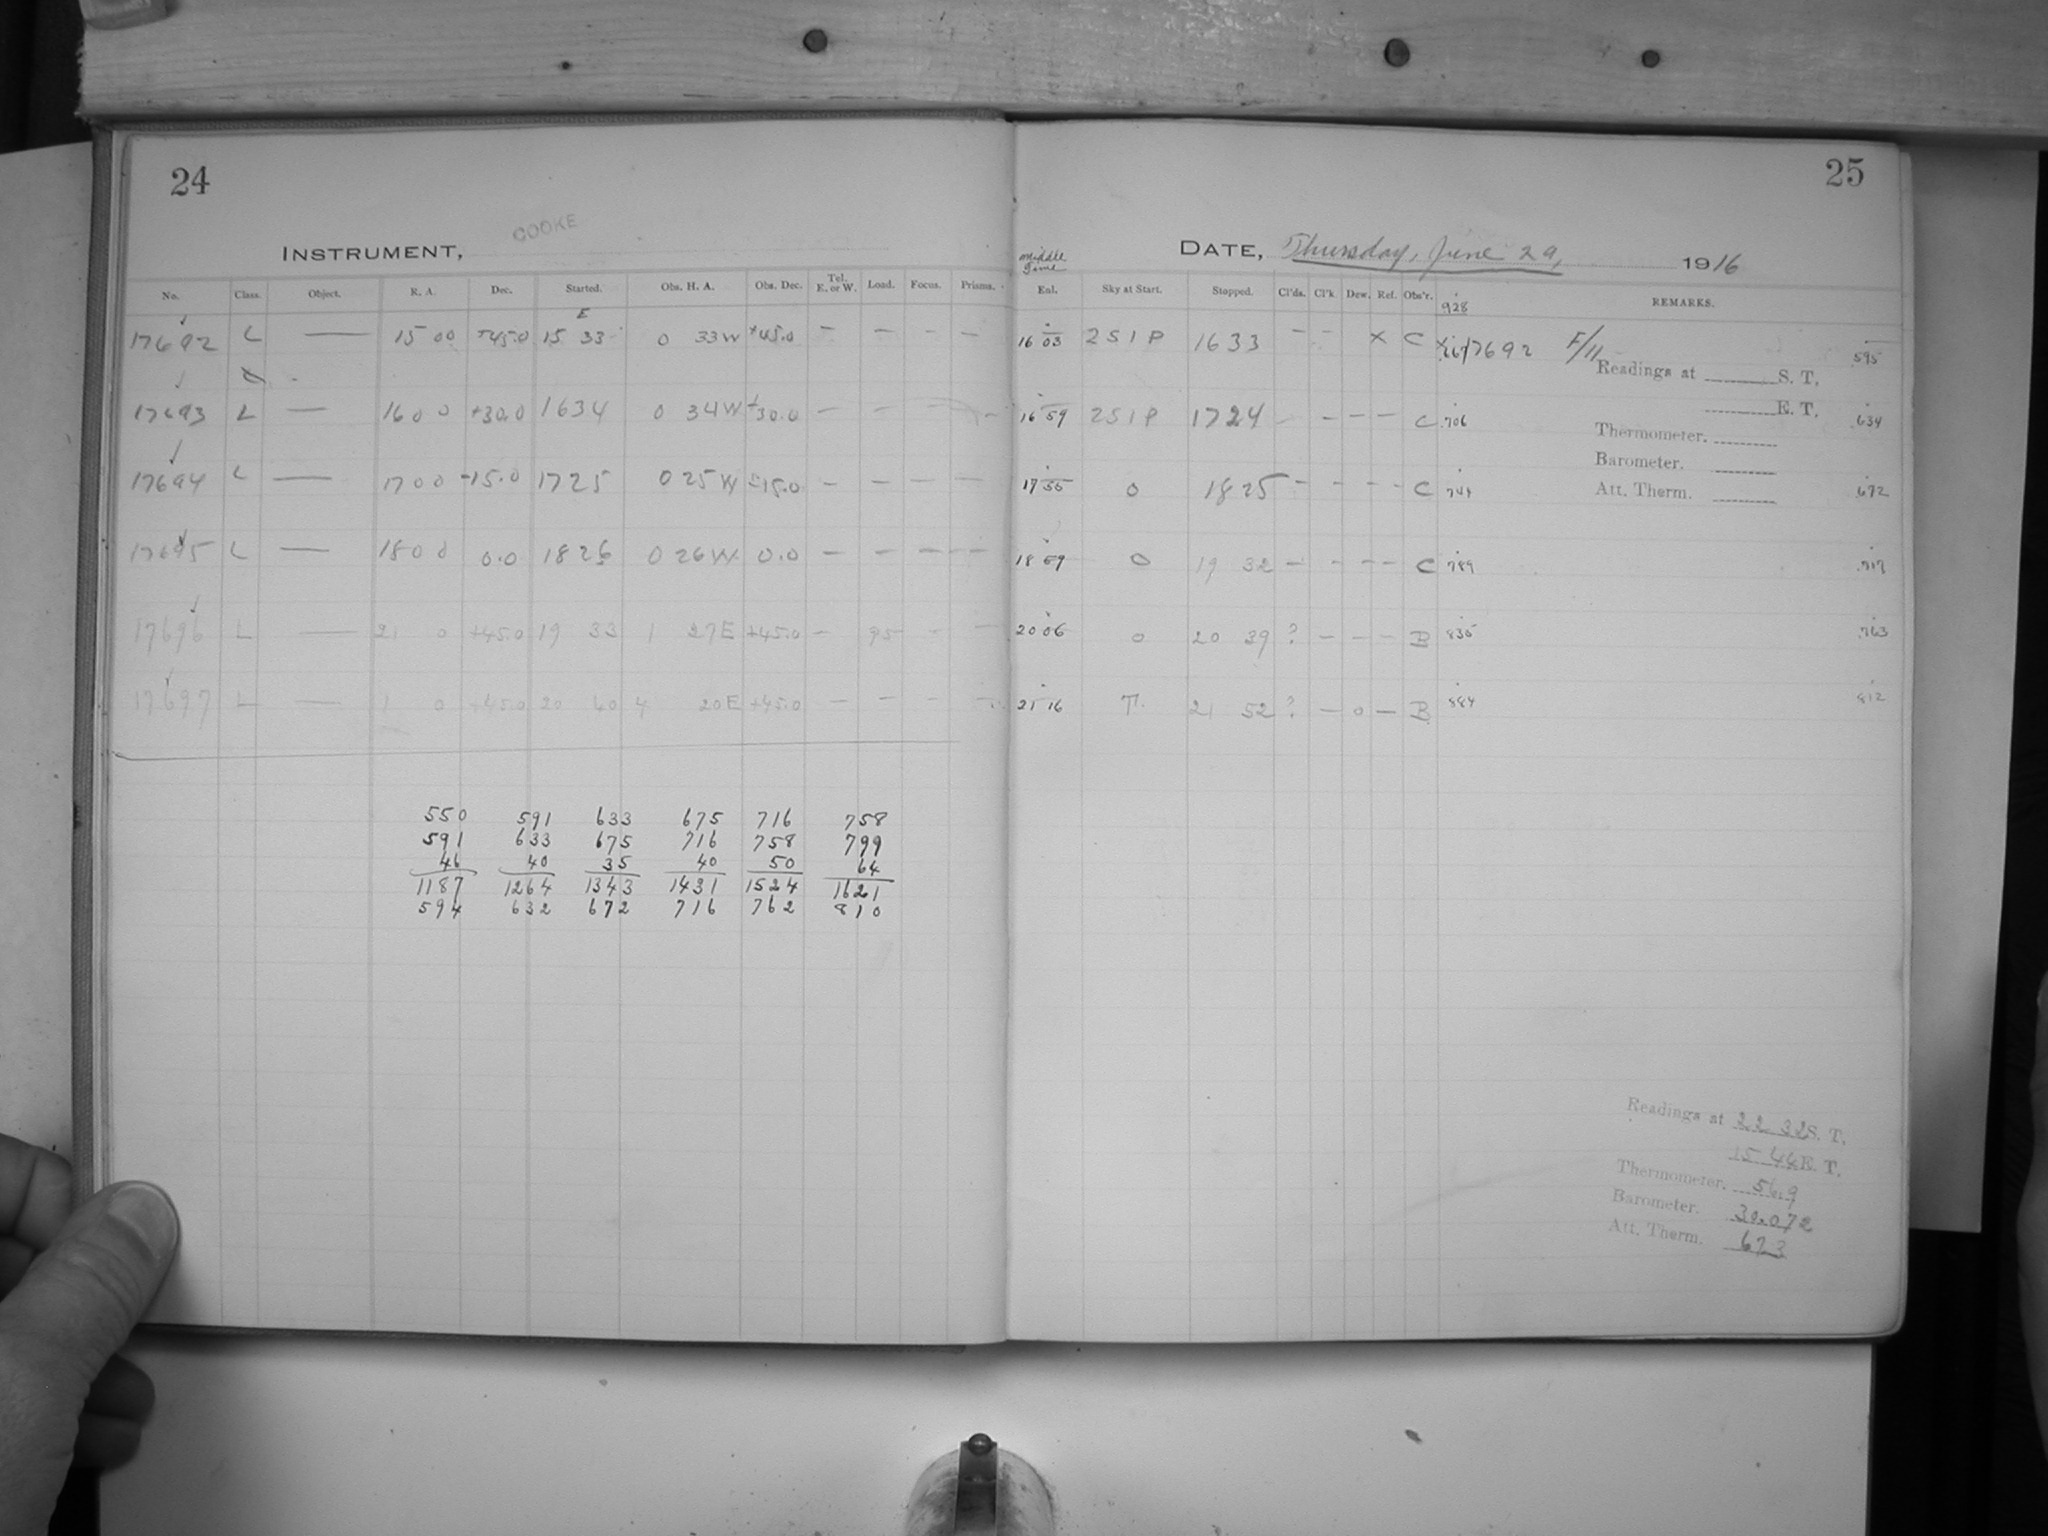 24
COOKE
INSTRUMENT,
No. Class. Object. R. A. Dec. Started. Obs. H. A. Obs. Dec. Tel. E. or W. Load. Focus. Prisms.
E
17692 L — 15 00 +45.0 15 33 0 33W +45.0 — — — —
17693 L — 16 0 0 +30.0 1634 0 34W +30.0 — — — —
17694 L — 17 0 0 -15.0 1725 0 25W -15.0 — — — —
17695 L — 18 0 0 0.0 1826 0 26W 0.0 — — — —
17696 L — 21 0 +45.0 19 33 1 27E +45.0 — 95 — —
17697 L — 1 0 +45.0 20 40 4 20E +45.0 — — — —
550 591 633 675 716 758
591 633 675 716 758 799
46 40 35 40 50 64
1187 1264 1343 1431 1524 1621
594 632 672 716 762 810
25
DATE, Thursday, June 29, 1916
Middle Time
Enl. Sky at Start. Stopped. Cl'ds. Cl'k. Dew. Ref. Obs'r. REMARKS.
928
16 03 2S1P 1633 — — X C 17692 F/11 595
Readings at S. T.
E. T.
16 59 2S1P 1724 — — — — C 706 634
Thermometer.
Barometer.
17 55 0 1825 — — — — C 744 672
Att. Therm.
18 59 0 19 32 — — — — C 789 717
20 06 0 20 39 ? — — — B 835 763
21 16 T. 21 52 ? — 0 — B 884 812
Readings at 22 32 S. T.
15 44 E. T.
Thermometer. 56.9
Barometer. 30.072
Att. Therm. 673